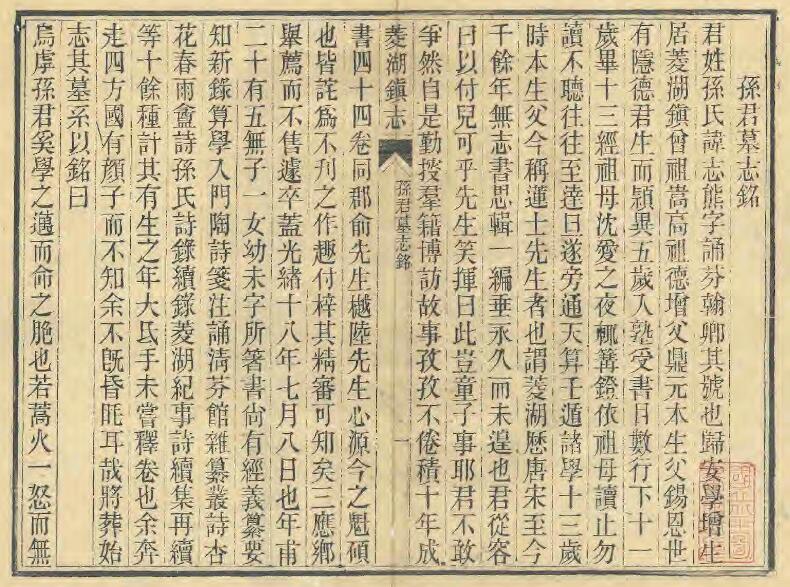 孫君墓志銘
君姓孫氏諱志熊字誦芬翰卿其號也歸安學增生
居菱湖鎮曾祖嵩高祖德增父鼎元本生父錫恩世
有隱德君生而穎異五歲入塾受書日數行下十一
歲畢十三經祖母沈愛之夜輒篝鐙依祖母讀止勿
讀不聽往往至達旦遂旁通天算壬遁諸學十三歲
時本生父今稱蓮士先生者也謂菱湖歷唐宋至今
千餘年無志書思輯一編垂永久而未遑也君從容
曰以付兒可乎先生笑揮曰此豈童子事耶君不敢
爭然自是勤搜羣籍博訪故事孜孜不倦積十年成
菱湖鎮志
孫君墓志銘
一
書四十四卷同郡俞先生樾陸先生心源今之魁碩
也皆詫為不刊之作趣付梓其精審可知矣三應鄉
舉薦而不售遽卒蓋光緒十八年七月八日也年甫
二十有五無子一女幼未字所箸書尚有經義纂要
知新錄算學入門陶詩箋注誦清芬館雜纂叢詩杏
花春雨盦詩孫氏詩錄續錄菱湖紀事詩續集再續
等十餘種計其有生之年大氐手未嘗釋卷也余奔
走四方國有顏子而不知余不旣昏眊耳哉將葬始
志其墓系以銘曰
烏虖孫君奚學之邁而命之脃也若蒿火一怒而無